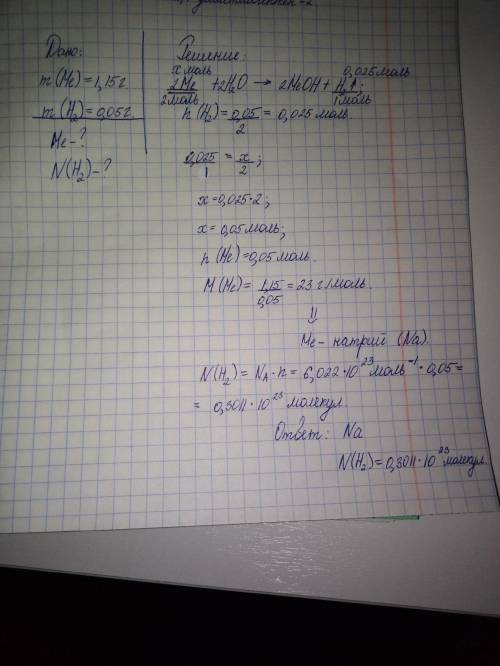 Дано:
m(Me)=1,15г.
m(H₂)=0,05г.
Me-?
N(H₂)-?
Решение:
x моль 0,025моль
2Me+2H₂O → 2MeOH+H₂↑;
2моль 1моль
n(H₂)=0,05/2=0,025 моль.
0,025/1=x/2;
x=0,025·2;
x=0,05моль;
n(Me)=0,05моль.
M(Me)=1,15/0,05=23 г/моль.
⇓
Me- натрий (Na).
N(H₂)=N_A·n=6,022·10²³моль⁻¹·0,05=
=0,3011·10²³молекул.
Ответ: Na
N(H₂)=0,3011·10²³молекул.